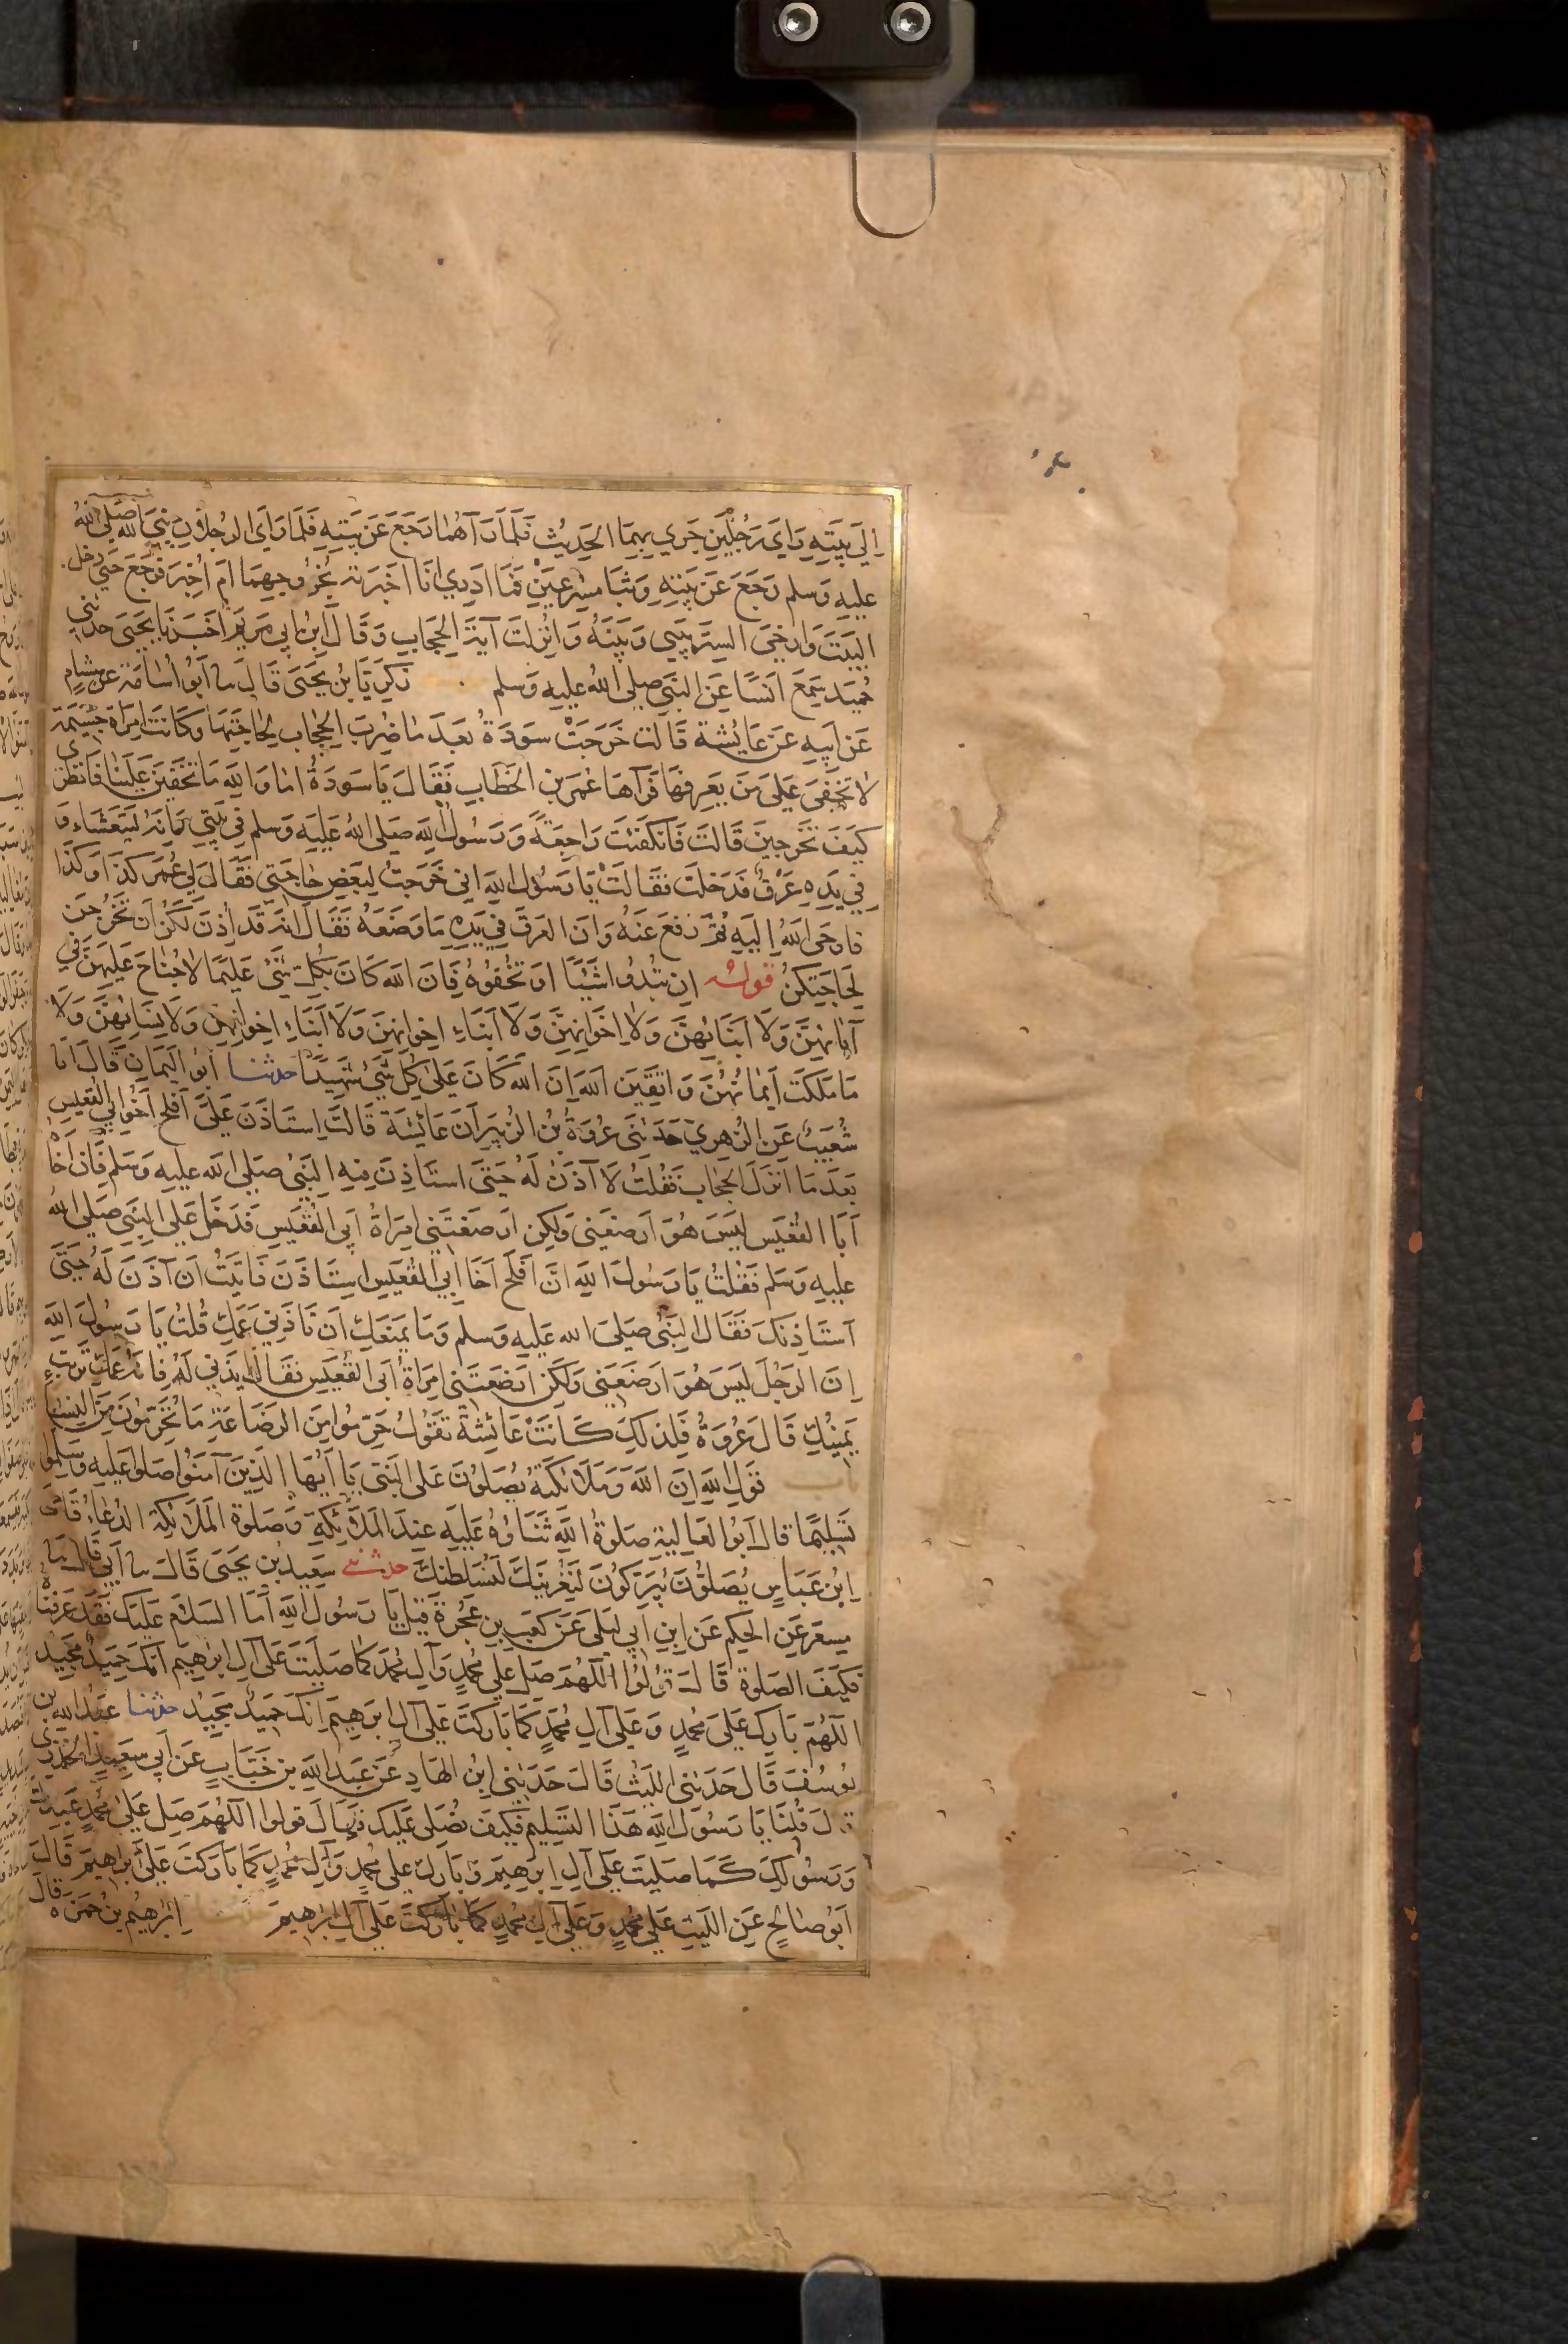 الي بيته وَاي رجلين جري بهما الحديث فلما رآهما رجع عن بيته فلما راي الرجلان نبي الله صلى الله
عليه وسلم رجع عن بيته وثبا مسرعين فما ادري انا اخبرته بخروجهما ام اخبر فرجع حتى دخل
البيت وارخى الستر بيني وبينه وانزلت آية الحجاب وقال ابن ابي مريم اخبرنا يحيى حدثني
حميد سمع انسا عن النبي صلى الله عليه وسلم زكريا بن يحيى قال سا ابو اسامة عن هشام
عن ابيه عن عايشة قالت خرجت سودة بعد ما ضرب الحجاب لحاجتها وكانت امراة جسيمة
لا تخفى على من يعرفها فرآها عمر بن الخطاب فقال يا سودة اما والله ما تخفين علينا فانظري
كيف تخرجين قالت فانكفئت راجعة ورسول الله صلى الله عليه وسلم في بيتي وانه ليتعشاء و
في يده عرق فدخلت فقالت يا رسول الله اني خرجت لبعض حاجتي فقال لي عمر كذا وكذا
فاوحى الله اليه ثم رفع عنه وان العرق في يده ما وضعه فقال انه قد اذن لكن ان تخرجن
لحاجتكن قوله ان تبدوا شيئا او تخفوه فان الله كان بكل شيء عليما لا جناح عليهن في
آبائهن ولا ابنائهن ولا اخوانهن ولا ابناء اخوانهن ولا ابناء اخواتهن ولا نسائهن ولا
ما ملكت ايمانهن واتقين الله ان الله كان على كل شيء شهيدا حدثنا ابو اليمان قال انا
شعيب عن الزهري حدثني عروة بن الزبير ان عائشة قالت استاذن علي افلح اخو ابي القعيس
بعد ما انزل الحجاب فقلت لا آذن له حتى استاذن فيه النبي صلى الله عليه وسلم فان اخا
ابا القعيس ليس هو ارضعني ولكن ارضعتني امراة ابي القعيس فدخل علي النبي صلى الله
عليه وسلم فقلت يا رسول الله ان افلح اخا ابي القعيس استاذن فابيت ان آذن له حتى
استاذنك فقال النبي صلى الله عليه وسلم وما يمنعك ان تاذني عمك قلت يا رسول الله
ان الرجل ليس هو ارضعني ولكن ارضعتني امراة ابي القعيس فقال ايذني له فانه عمك تربت
يمينك قال عروة فلذلك كانت عائشة تقول حرموا من الرضاعة ما تحرمون من النسب
باب قول الله ان الله وملائكته يصلون على النبي يا ايها الذين آمنوا صلوا عليه وسلموا
تسليما قال ابو العالية صلوة الله ثناؤه عليه عند الملائكة وصلوة الملائكة الدعاء قال
ابن عباس يصلون يبركون لنغرينك لنسلطنك حدثني سعيد بن يحيى قال سا ابي قال سا
مسعر عن الحكم عن ابن ابي ليلى عن كعب بن عجرة قيل يا رسول الله اما السلام عليك فقد عرفناه
فكيف الصلوة قال قولوا اللهم صل علي محمد وآل محمد كما صليت على آل ابرهيم انك حميد مجيد
اللهم بارك على محمد وعلى آل محمد كما باركت على آل ابرهيم انك حميد مجيد حدثنا عبد الله بن
يوسف قال حدثني الليث قال حدثني ابن الهاد عن عبد الله بن خباب عن ابي سعيد الخدري
قال قلنا يا رسول الله هذا التسليم فكيف نصلى عليك قال قولوا اللهم صل على محمد عبدك
ورسولك كما صليت على آل ابرهيم وبارك على محمد وآل محمد كما باركت على ابرهيم قال
ابو صالح عن الليث على محمد وعلى آل محمد كما باركت على آل ابرهيم ابرهيم بن حمزة قال